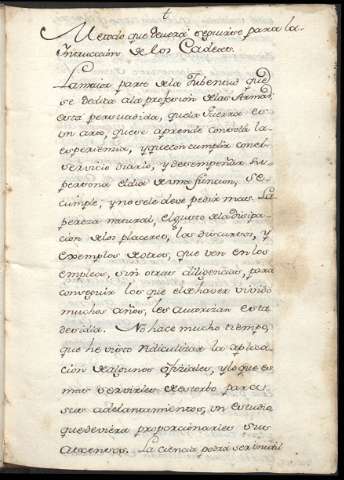 t
Metodo que deverá seguirse para la
Instruccion de los Cadetes.
La maior parte de la Jubentud que
se dedica a la profesion de las Armas,
esta persuadida, que la Guerra es
un arte, que se aprende con sola la
esperiencia, y que con cumplir con el
servicio diario, y desempeñar su
persona el dia de una funcion, se
cumple; y no se le deve pedir mas. La
pereza natural, el gusto de la disipa-
cion de los placeres, los discursos, y
exemplos de otros, que ven en los
empleos, sin otras diligencias, para
conseguir los que el de haver vivido
muchos años, les autorizan esta
desidia. No hace mucho tiempo,
que he visto ridiculizar la aplica-
cion de algunos oficiales, y lo que es
mas servirles de estorbo para
sus adelantamientos, un estudio
que deviera proporcionarles sus
Ascensos. La ciencia podrá ser inutil